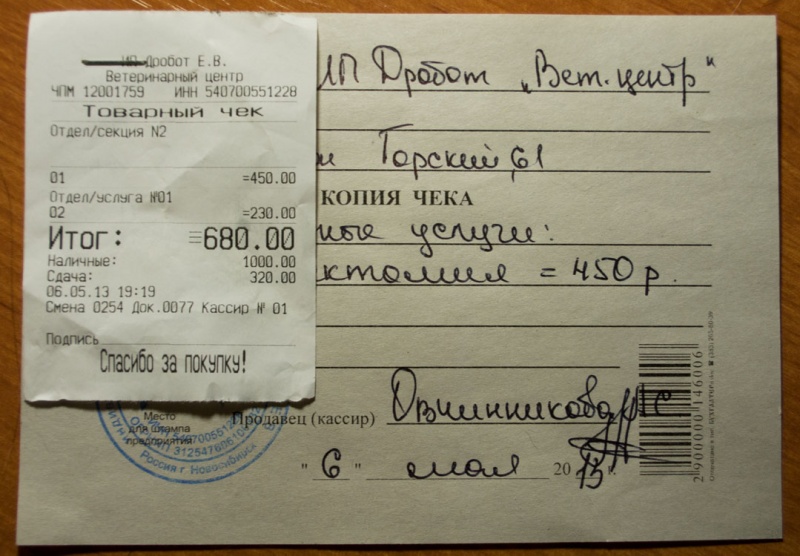 ИП Дробот Е.В.
Ветеринарный центр
ЧПМ 12001759 ИНН 540700551228
Товарный чек
Отдел/секция N2
01 =450.00
Отдел/услуга №01
02 =230.00
Итог: =680.00
Наличные: 1000.00
Сдача: 320.00
06.05.13 19:19
Смена 0254 Док.0077 Кассир № 01
Подпись
Спасибо за покупку!
ИП Дробот „Вет.центр"
Горский, 61
КОПИЯ ЧЕКА
ные услуги:
ктомия = 450 р.
Продавец (кассир) Овчинникова
" 6 " мая 2013 г.
Место
для штампа
предприятия
Россия г. Новосибирск
2900000146006